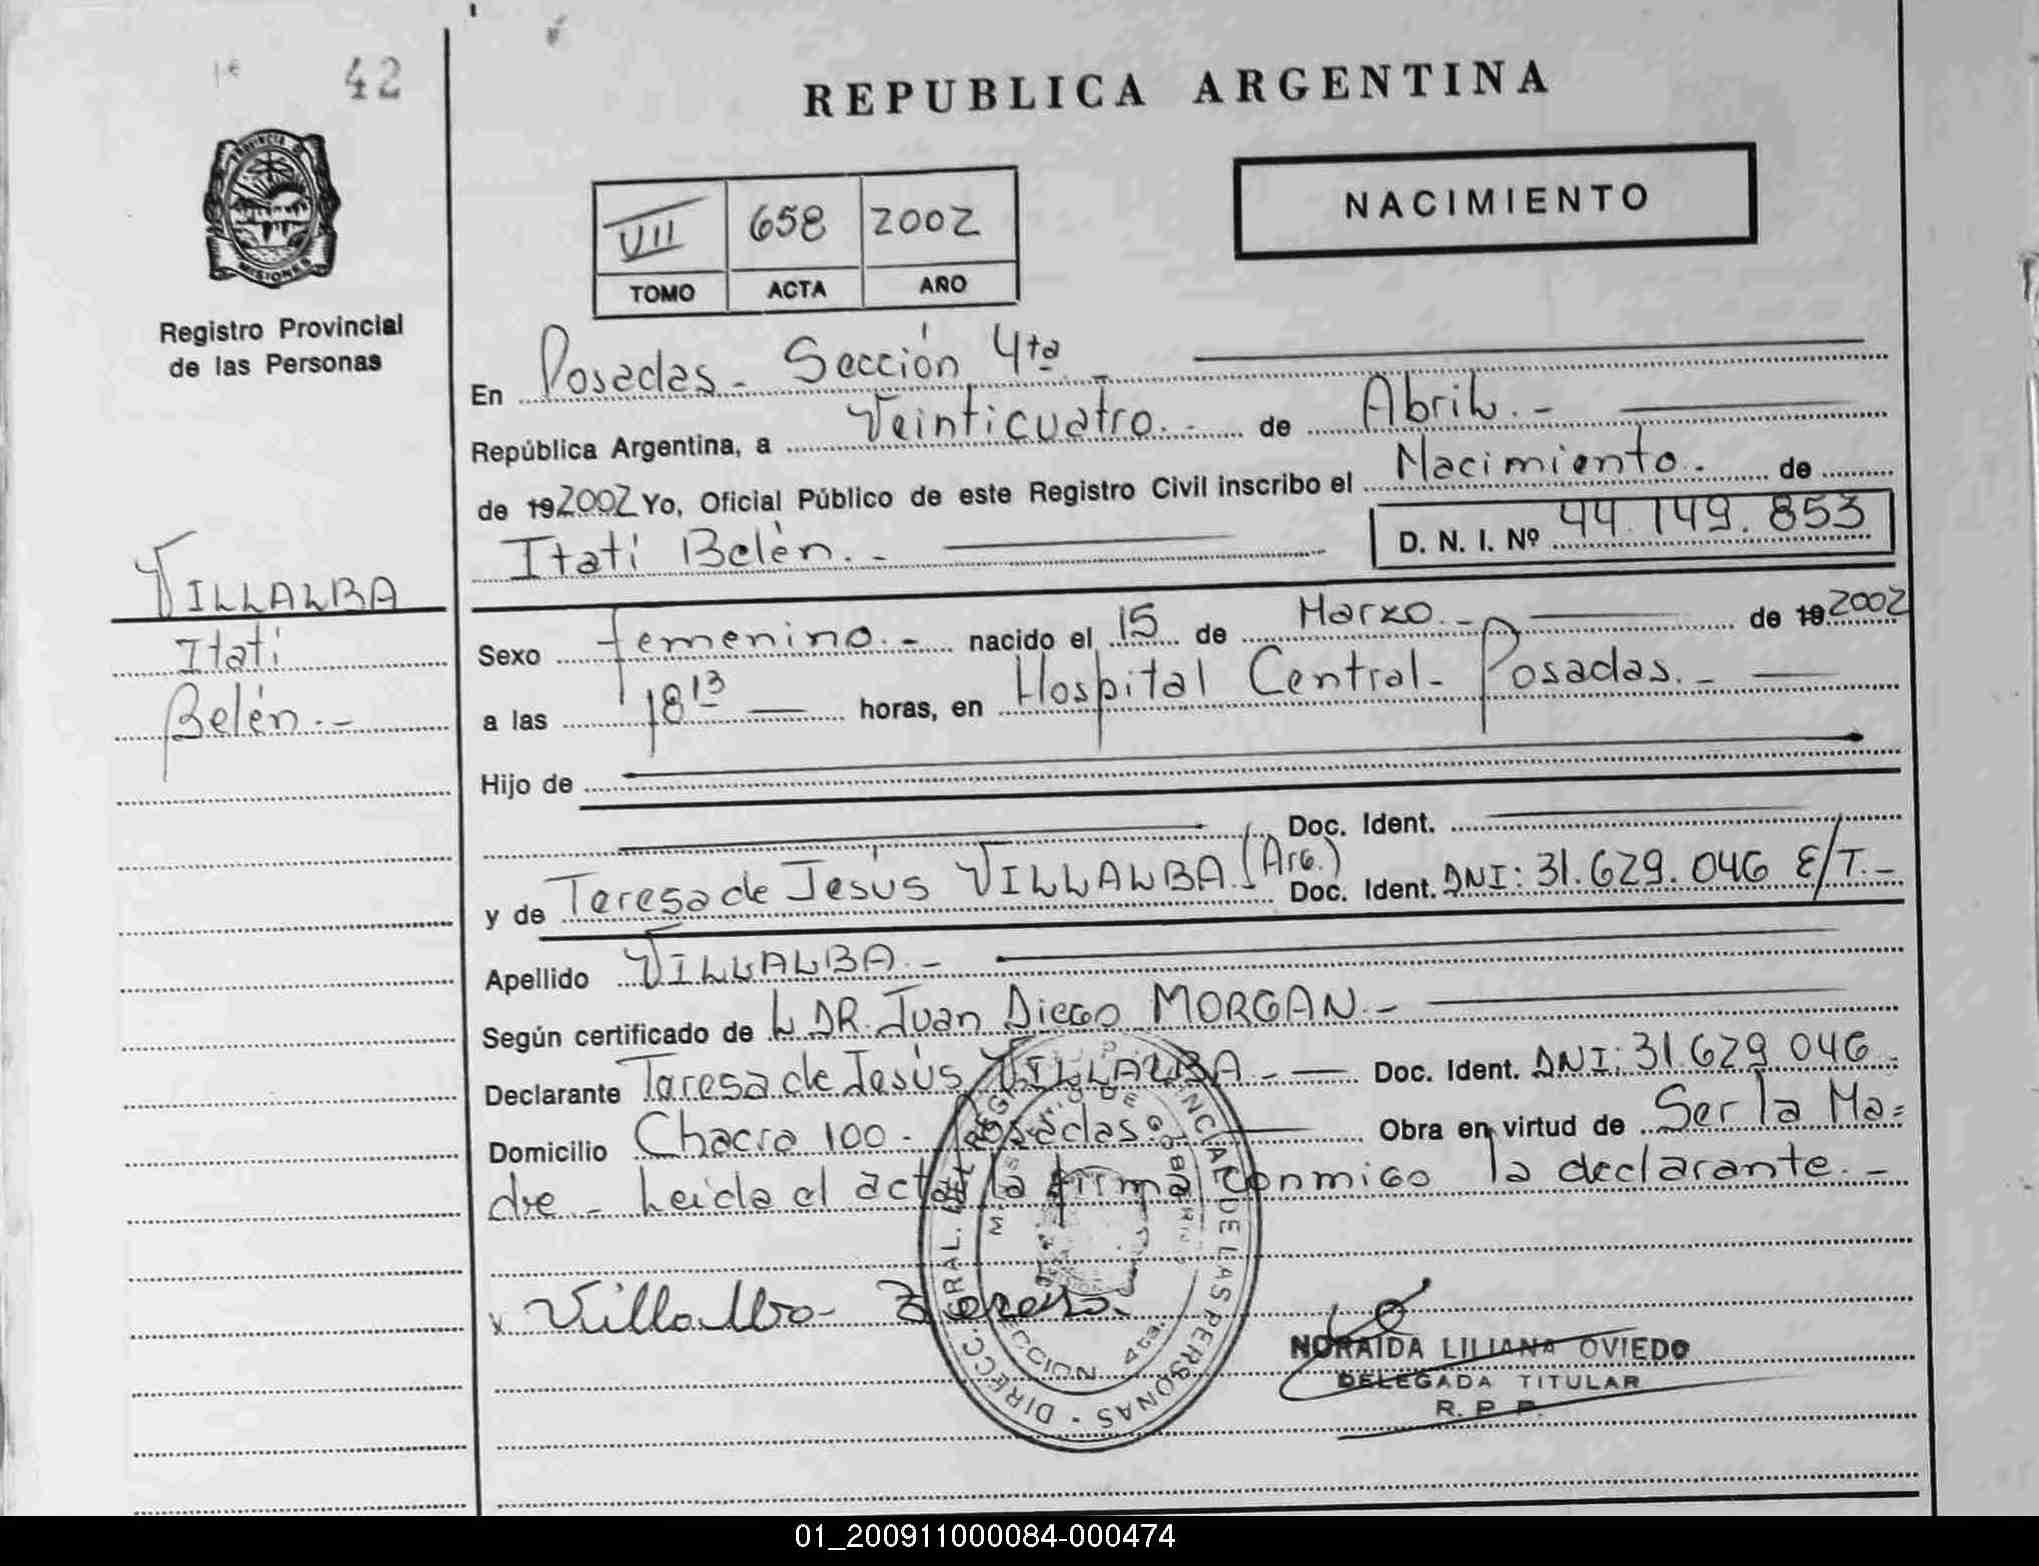 42
REPUBLICA ARGENTINA
PROVINCIA DE
MISIONES
Registro Provincial
de las Personas
NACIMIENTO
VII 658 2002
TOMO ACTA AÑO
En Posadas - Sección 4ta -
República Argentina, a Veinticuatro. - de Abril. -
de 19 2002 Yo, Oficial Público de este Registro Civil inscribo el Nacimiento. de
Itatí Belén. - D. N. I. Nº 44.149.853
VILLALBA
Itatí
Belén. -
Sexo femenino. - nacido el 15 de Marzo. - de 19 2002
a las 18 13 horas, en Hospital Central - Posadas. -
Hijo de
Doc. Ident.
y de Teresa de Jesús VILLALBA (Arg.) Doc. Ident. DNI: 31.629.046 E/T. -
Apellido VILLALBA. -
Según certificado de L DR. Juan Diego MORGAN. -
Declarante Teresa de Jesús VILLALBA - Doc. Ident. DNI: 31.629.046.
Domicilio Chacra 100 - Posadas. Obra en virtud de Ser la Ma=
dre - Leída el acta, la firma conmigo la declarante. -
x Villalba Teresa.
DIRECC. GRAL. DEL REG. PROVINCIAL DE LAS PERSONAS
SECCION 4ta.
NORAIDA LILIANA OVIEDO
DELEGADA TITULAR
R. P. P.
01_200911000084-000474